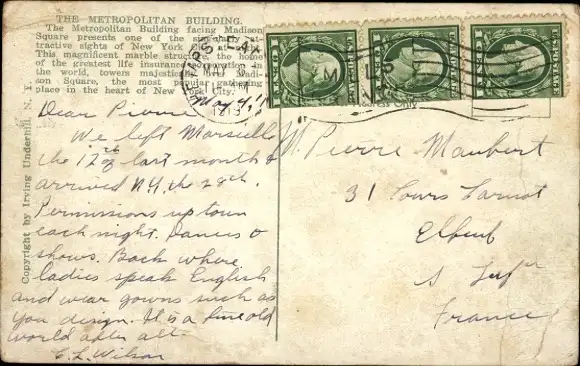 THE METROPOLITAN BUILDING.
The Metropolitan Building facing Madison
Square presents one of the
tractive sights of New York City at
This magnificent marble the home
of the greatest life insurance corporation in
the world, towers majestically over Madi-
son Square, the most popular gathering
place in the heart of New York City.
Copyright by Irving Underhill N. Y.
May 4,
Dear Pierre
We left Marseille
the 12th of last month &
arrived N.Y. the 28th.
Permissions up town
each night. Dances &
shows. Back where
ladies speak English
and wear gowns such as
you design. It is a fine old
world after all.
C. L. Wilson
M. Pierre Maubert
31 Cours Carnot
Elbeuf
S. Infre
France